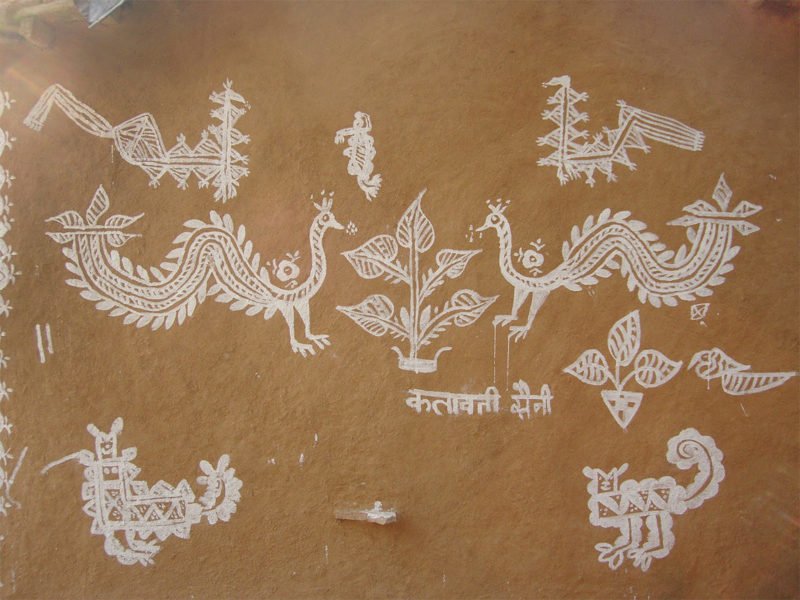 कलावती सैनी